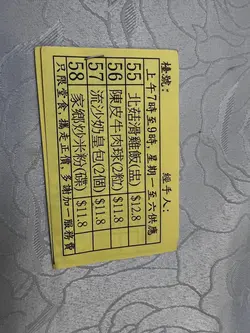 檯號: 經手人:
上午7時至9時, 星期一至六供應
55 北菇滑雞飯(盅) $12.8
56 陳皮牛肉球(2粒) $11.8
57 流沙奶皇包(2個) $11.8
58 家鄉炒米粉(碟) $11.8
只限堂食, 攜走正價, 多謝加一服務費